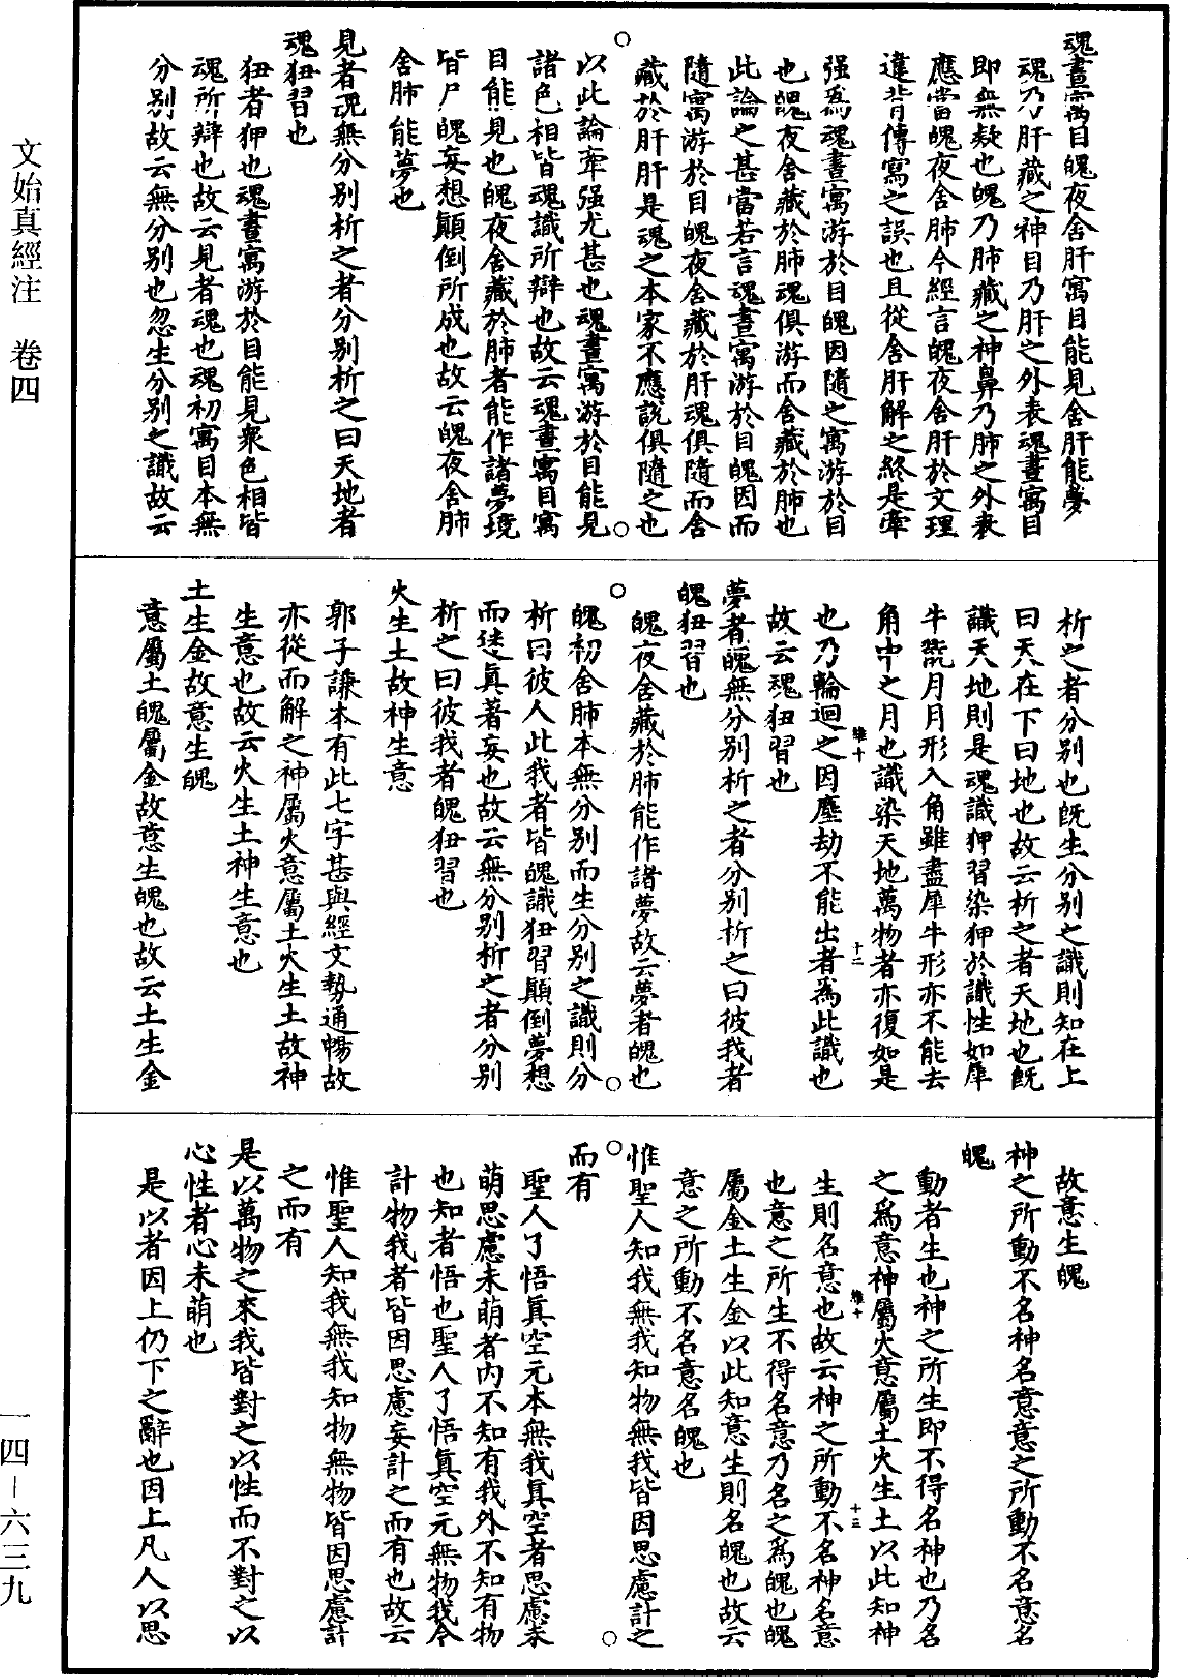 魂晝寓目魄夜舍肝寓目能見舍肝能夢
魂乃肝藏之神目乃肝之外表魂晝寓目
即無疑也魄乃肺藏之神鼻乃肺之外表
應當魄夜舍肺今經言魄夜舍肝於文理
違背傳寫之誤也且從舍肝解之終是牽
强爲魂晝寓游於目魄因隨之寓游於目
也魄夜舍藏於肺魂俱游而舍藏於肺也
此論之甚當若言魂晝寓游於目魄因而
隨寓游於目魄夜舍藏於肝魂俱隨而舍
藏於肝肝是魂之本家不應説俱隨之也
以此論牽强尤甚也魂晝寓游於目能見
諸色相皆魂識所辯也故云魂晝寓目寓
目能見也魄夜舍藏於肺者能作諸夢境
皆尸魄妄想顛倒所成也故云魄夜舍肺
舍肺能夢也
見者魂無分别析之者分别析之曰天地者
魂狃習也
狃者狎也魂晝寓游於目能見衆色相皆
魂所辯也故云見者魂也魂初寓目本無
分别故云無分别也忽生分别之識故云
析之者分别也既生分别之識則知在上
曰天在下曰地也故云析之者天地也既
識天地則是魂識狎習染狎於識性如犀
牛翫月月形入角雖盡犀牛形亦不能去
角中之月也識染天地萬物者亦復如是
也乃輪迴之因塵劫不能出者爲此識也
故云魂狃習也
夢者魄無分别析之者分别析之曰彼我者
魄狃習也
魄夜舍藏於肺能作諸夢故云夢者魄也
魄初舍肺本無分别而生分别之識則分
析曰彼人此我者皆魄識狃習顛倒夢想
而迷真著妄也故云無分别析之者分别
析之曰彼我者魄狃習也
火生土故神生意
郭子謙本有此七字甚與經文勢通暢故
亦從而解之神屬火意屬土火生土故神
生意也故云火生土神生意也
土生金故意生魄
意屬土魄屬金故意生魄也故云土生金
故意生魄
神之所動不名神名意意之所動不名意名
魄
動者生也神之所生即不得名神也乃名
之爲意神屬火意屬土火生土以此知神
生則名意也故云神之所動不名神名意
也意之所生不得名意乃名之爲魄也魄
屬金土生金以此知意生則名魄也故云
意之所動不名意名魄也
惟聖人知我無我知物無我皆因思慮計之
而有
聖人了悟真空元本無我真空者思慮未
萌思慮未萌者内不知有我外不知有物
也知者悟也聖人了悟真空元無物我今
計物我者皆因思慮妄計之而有也故云
惟聖人知我無我知物無物皆因思慮計
之而有
是以萬物之來我皆對之以性而不對之以
心性者心未萌也
是以者因上仍下之辭也因上凡人以思
難十
十二
難十
十三
文始真經注　卷四
一四-六三九